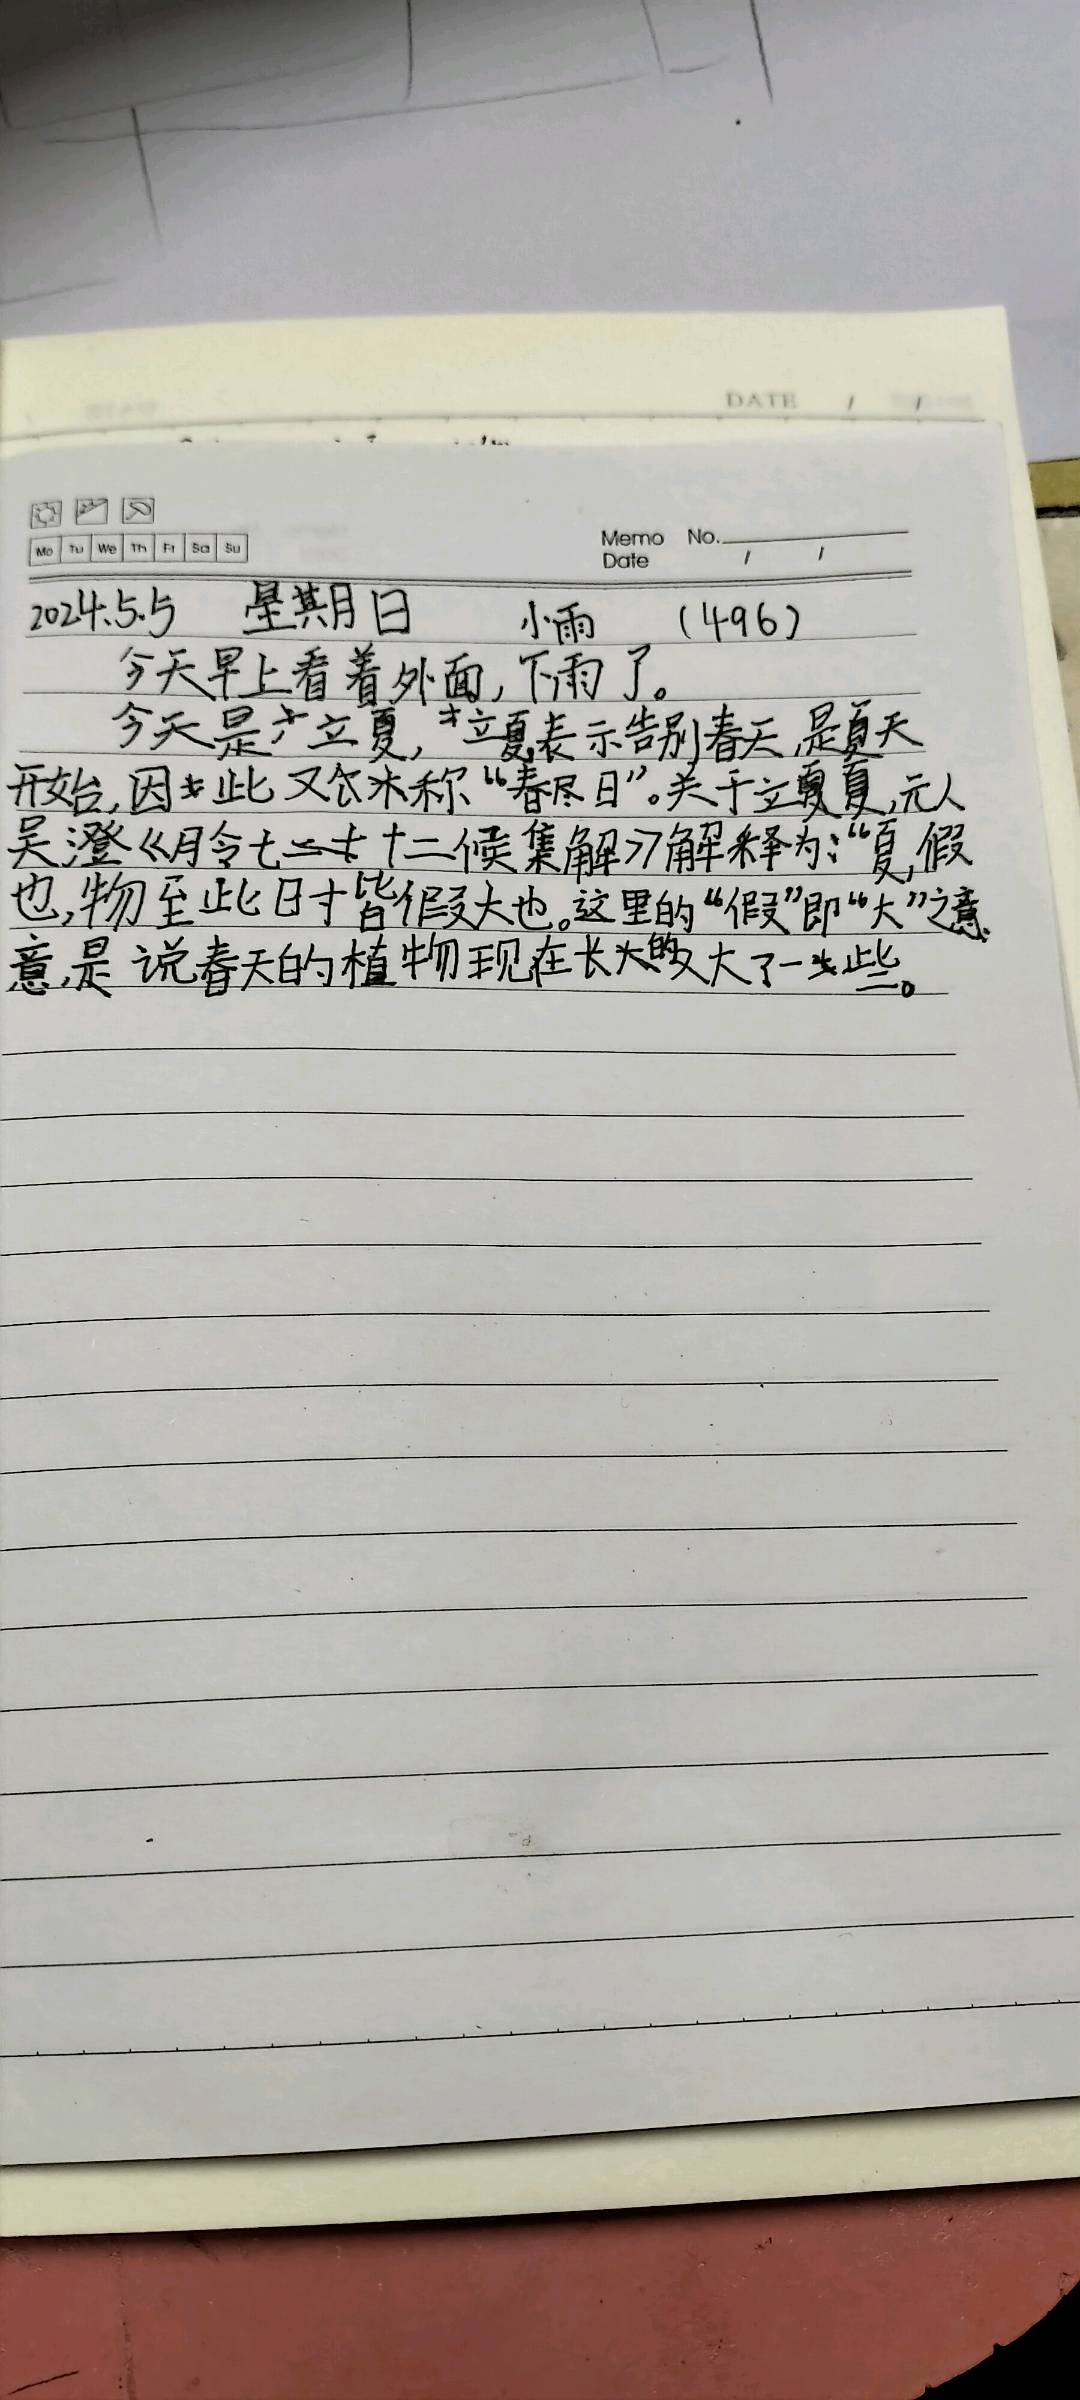 DATE / /
Mo Tu We Th Fr Sa Su
Memo No.
Date / /
2024.5.5 星期日 小雨 (496)
今天早上看着外面,下雨了。
今天是立夏,立夏表示告别春天,是夏天
开始,因此又称“春尽日”。关于立夏,元人
吴澄《月令七十二候集解》解释为:“夏,假
也,物至此时皆假大也。这里的“假”即“大”之意
意,是说春天的植物现在长大了一些。